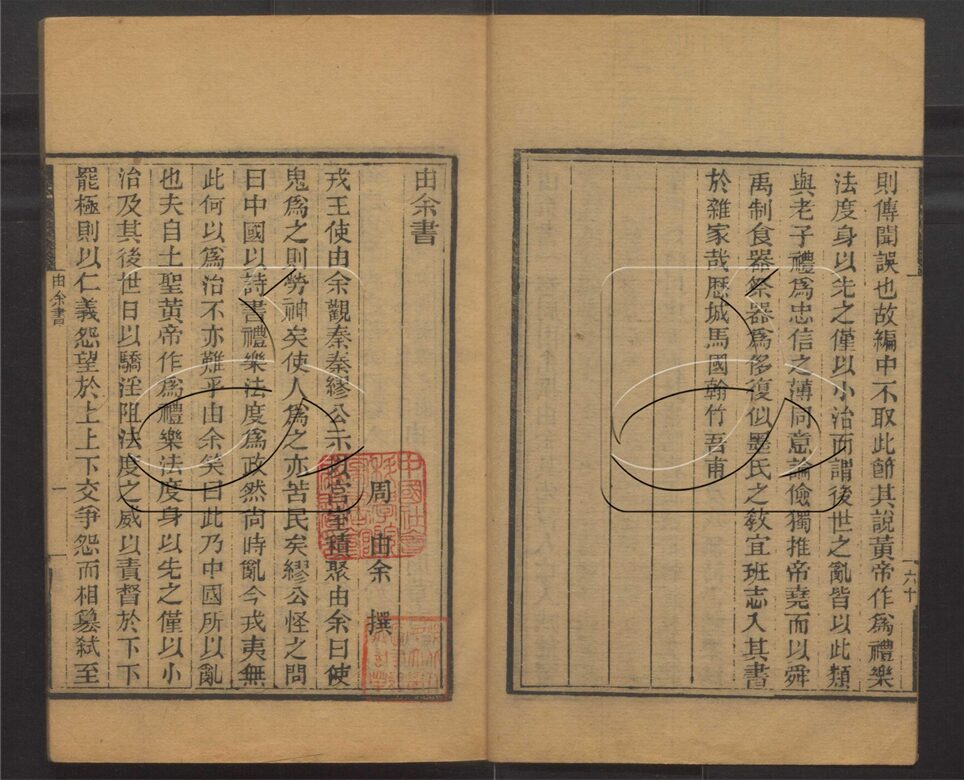 則傳聞誤也故編中不取此節其說黃帝作爲禮樂
法度身以先之僅以小治而謂後世之亂皆以此類
與老子禮爲忠信之薄同意論儉獨推帝堯而以舜
禹制食器祭器爲侈復似墨氏之敎宜班志入其書
於雜家哉歴城馬國翰竹吾甫
六十
由余書
周 由余 撰
戎王使由余觀秦秦繆公示以宮室積聚由余曰使
鬼爲之則勞神矣使人爲之亦苦民矣繆公怪之問
曰中國以詩書禮樂法度爲政然尚時亂今戎夷無
此何以爲治不亦難乎由余笑曰此乃中國所以亂
也夫自上聖黃帝作爲禮樂法度身以先之僅以小
治及其後世日以驕淫阻法度之威以責督於下下
罷極則以仁義怨望於上上下交爭怨而相簒弑至
由余書
一